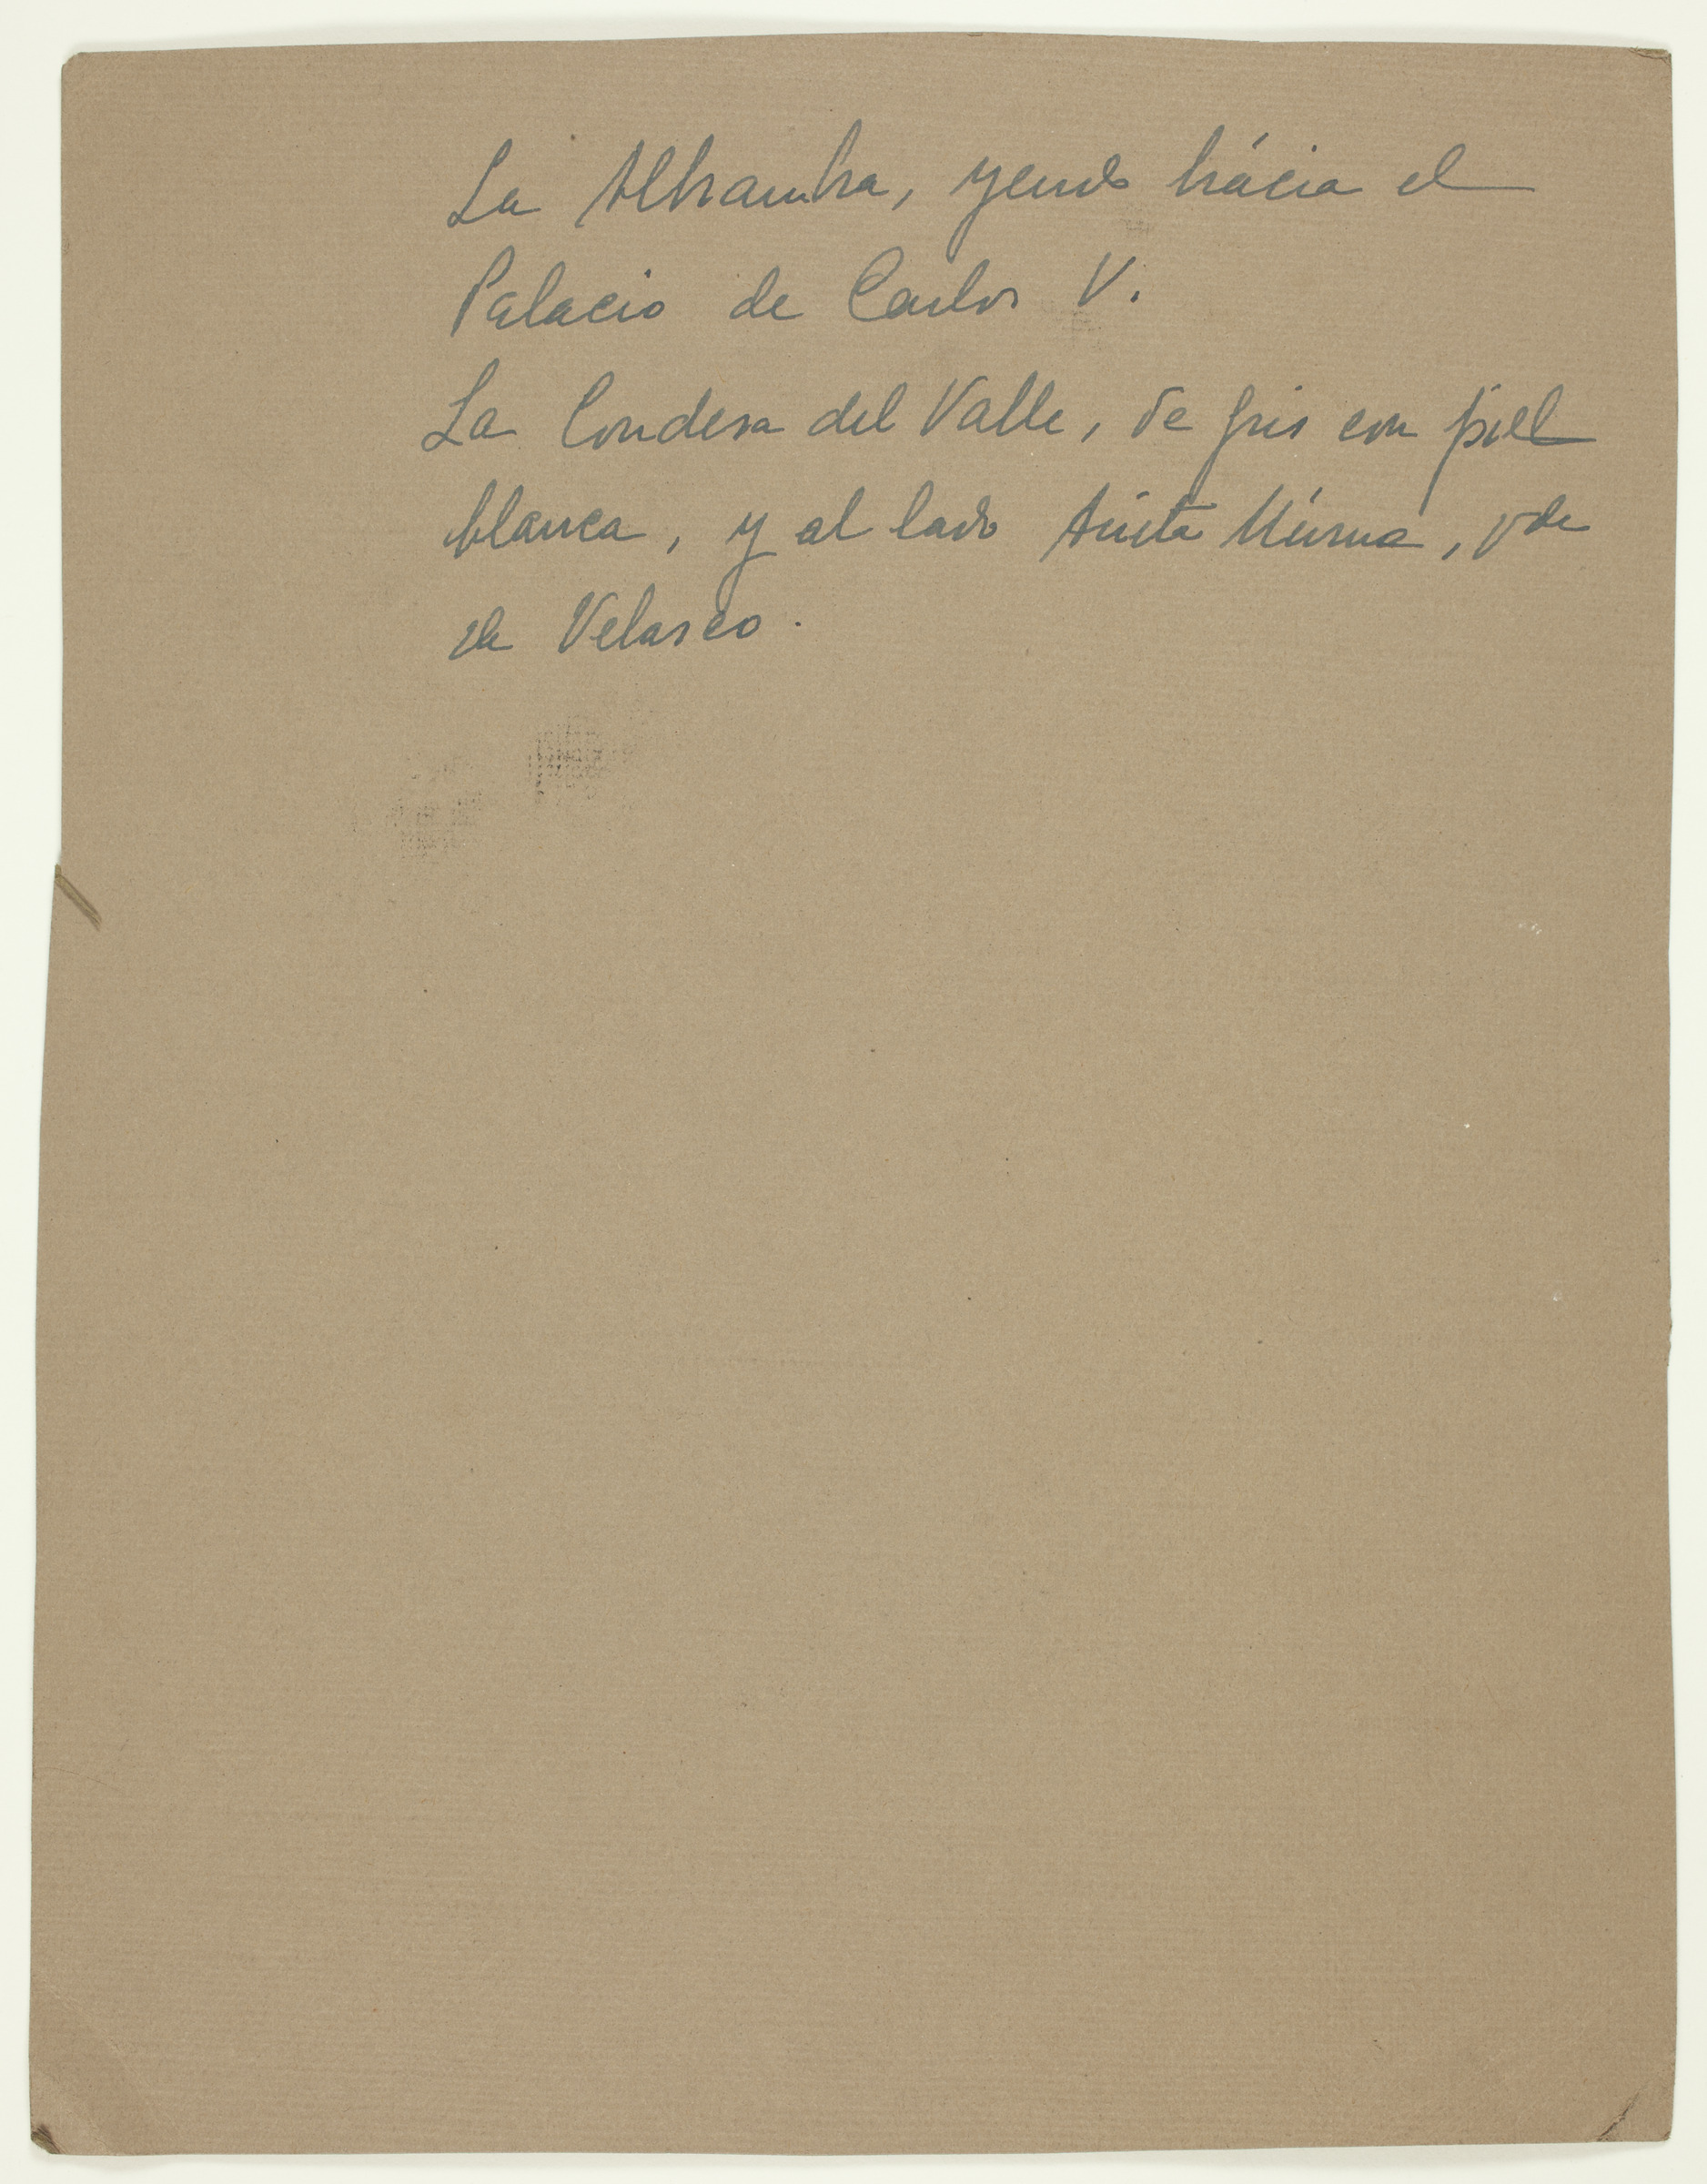 La Alhambra, yendo hácia el
Palacio de Carlos V.
La Condesa del Valle, de gris con piel
blanca, y al lado Anita
de Velasco.